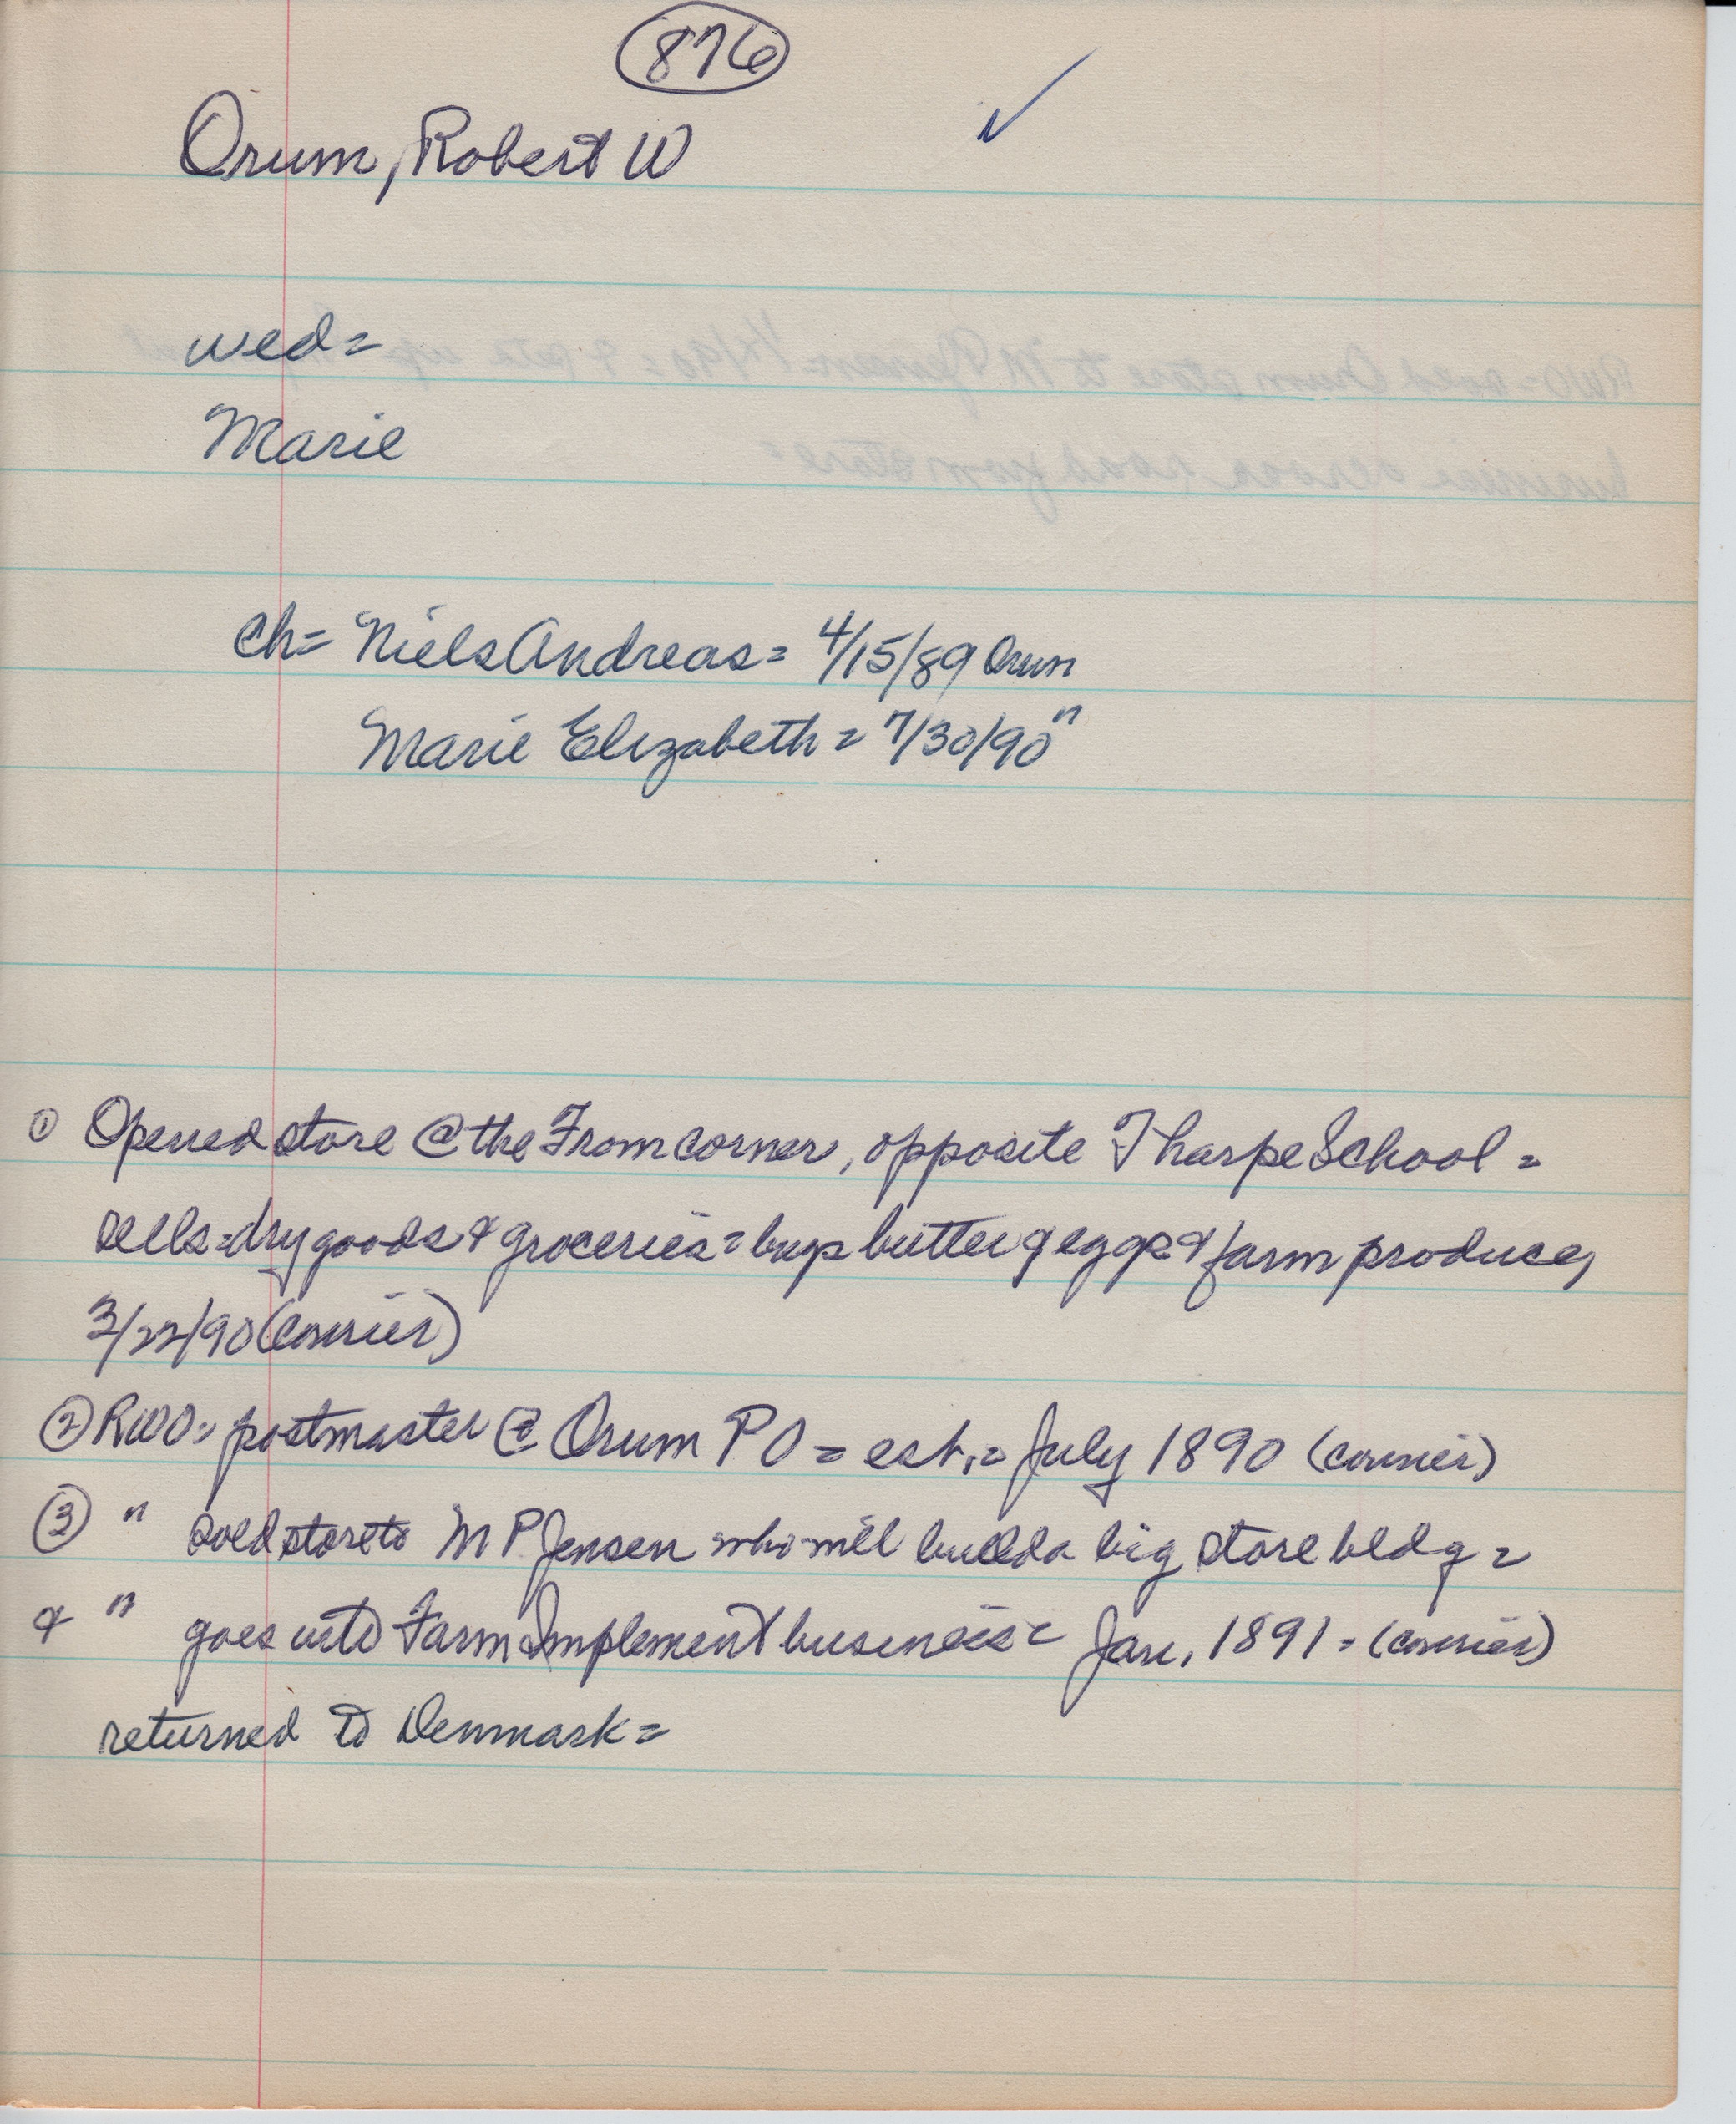 876
Orum, Robert W
wed =
Marie
ch = Niels Andreas = 4/15/89 Orum
Marie Elizabeth = 7/30/90 "
① Opened store @ the From corner, opposite Tharpe School =
sells = dry goods & groceries = buys butter & eggs & farm produce,
3/22/90 (Courier)
② RWO = postmaster @ Orum PO = est. = July 1890 (courier)
③ " sold store to M P Jensen who will build a big store bldg =
& " goes into Farm Implement business = Jan, 1891 = (courier)
returned to Denmark =